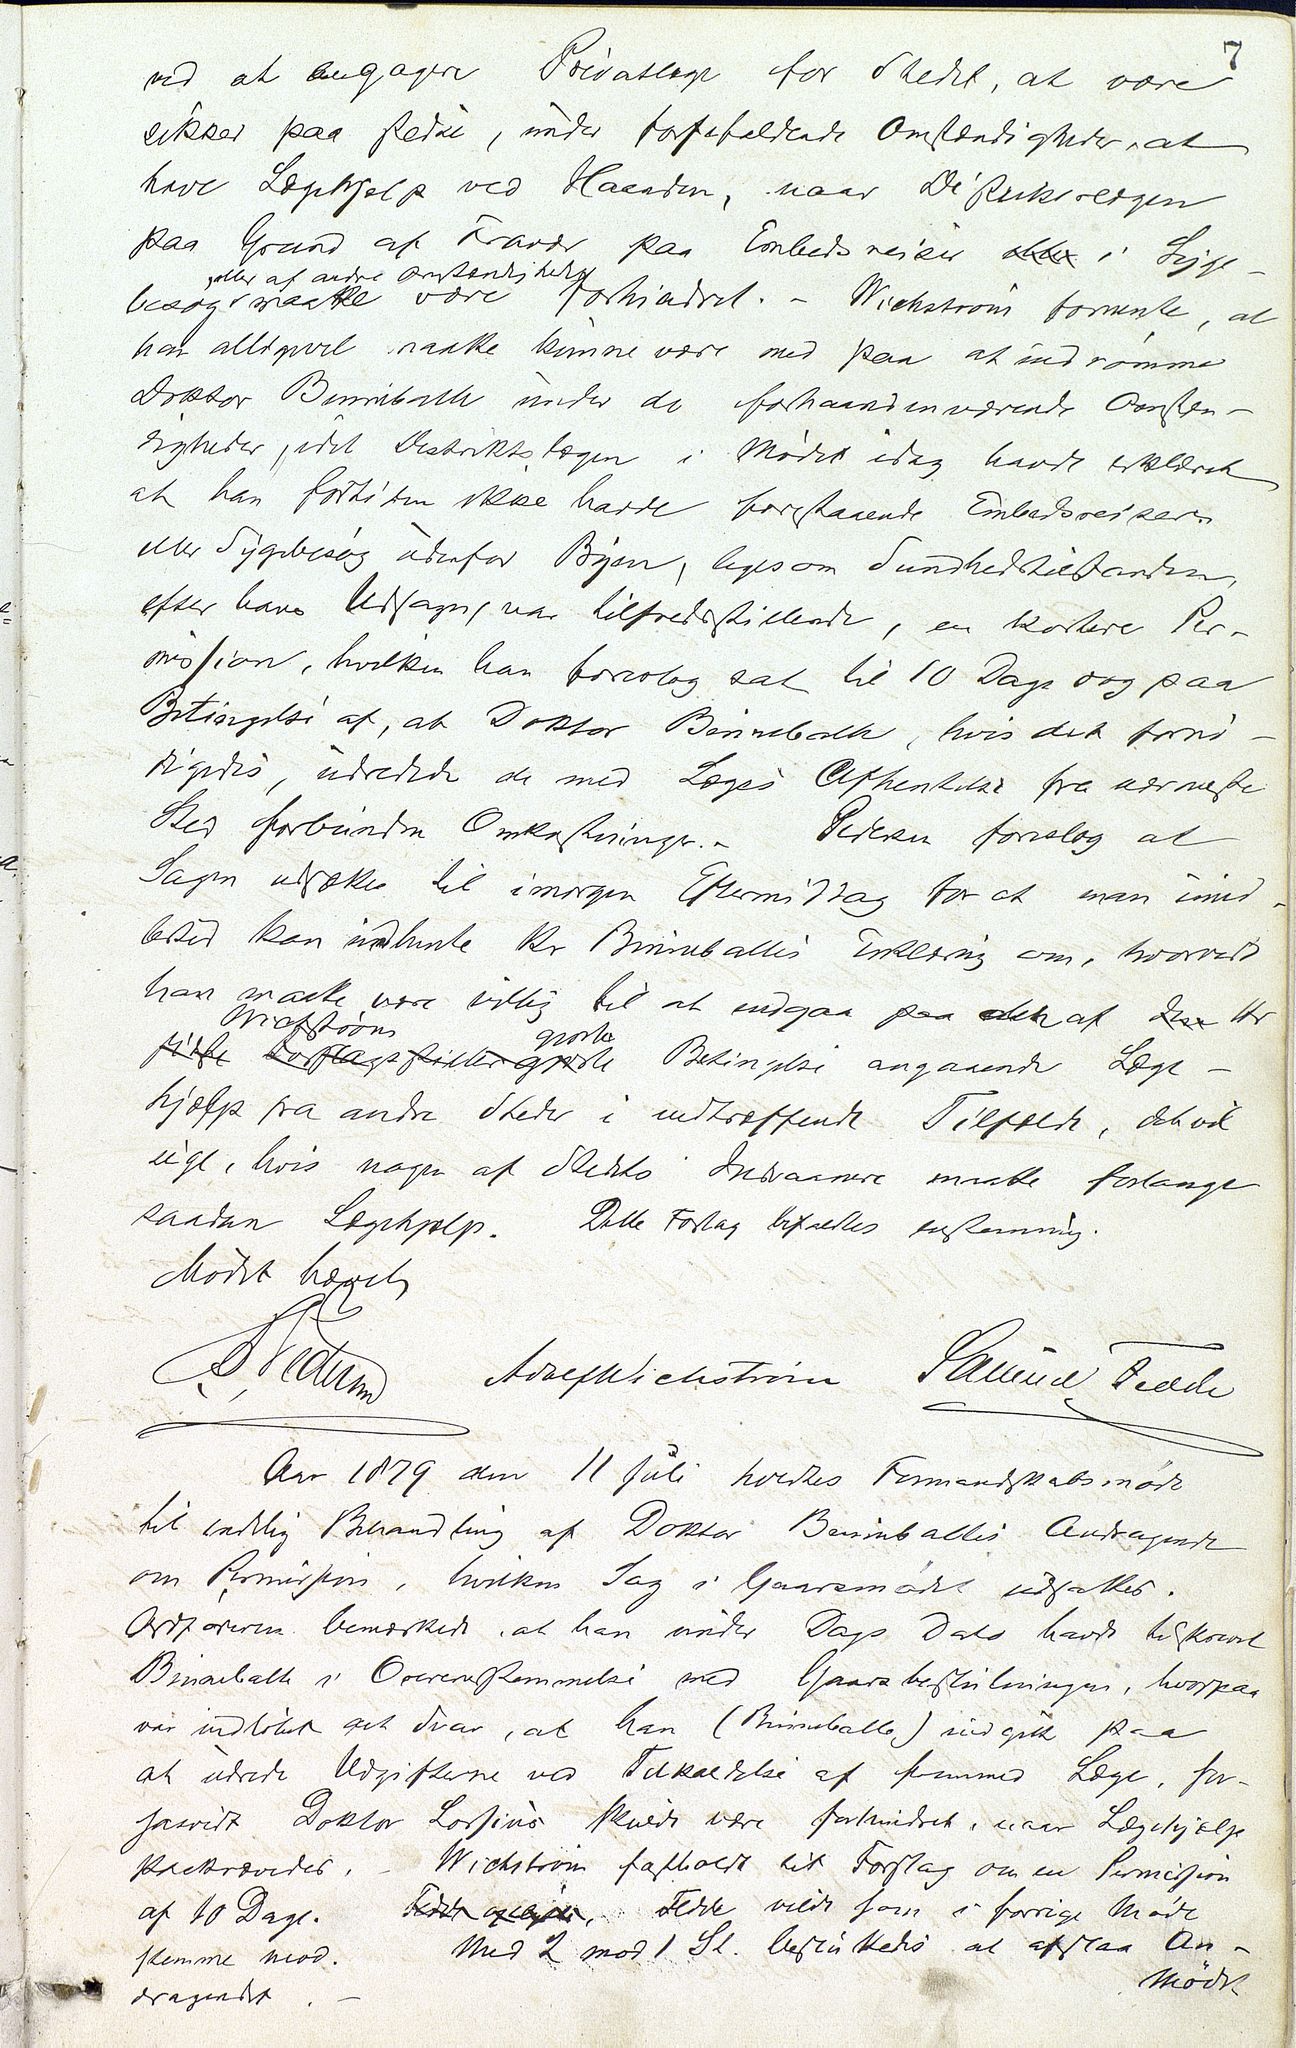 7
ved at engagere Privatlæge for Stedet, at være
sikker paa stedse, under forefaldende Omstændigheder, at
have Lægehjælp ved Haanden, naar Distriktslægen
paa Grund af Fravær paa Embedsreiser eller i Syge-
, eller af andre Omstændigheder
besøg maatte være forhindret. - Wichstrøm formente, at
han alligevel maatte kunne være med paa at indrømme
Doktor Binneballe under de forhaandenværende Omstæn-
digheder, idet Distriktslægen i Mødet idag havde erklæret
at han fortiden ikke havde forestaaende Embedsreiser
eller Sygebesøg udenfor Byen, ligesom Sundhedstilstanden,
efter hans Udsagn, var tilfredsstillende, en kortere Per-
mission, hvilken han foreslog sat til 10 Dage dog paa
Betingelse af, at Doktor Binneballe, hvis det fornø-
digedes, udredede de med Læges Afhentelse fra nærmeste
Sted forbundne Omkostninger. - Pedersen foreslog at
Sagen udsættes til imorgen Eftermiddag for at man imid-
lertid kan indhente Hr Binneballes Erklæring om, hvorvidt
han maatte være villig til at indgaa paa den af Hr
Wichstrøms gjorte
Forslagsstiller gjorte Betingelse angaaende Læge-
hjælp fra andre Steder i indtræffende Tilfælde, det vil
sige, hvis nogen af Stedets Indvaanere maatte forlange
saadan Lægehjælp. Dette Forslag bifaldtes enstemmig.
Mødet hævet
Pedersen Adolf Wichstrøm Samuel Fedde
Aar 1879 den 11 Juli holdtes Formandskabsmøde
til endelig Behandling af Doktor Binneballes Andragende
om Permission, hvilken Sag i Gaarsmødet udsattes.
Ordføreren bemærkede, at han under Dags Dato havde tilskrevet
Binneballe i Overensstemmelse med Gaarsbeslutningen, hvorpaa
var indløbet det Svar, at han (Binneballe) indgik paa
at udrede Udgifterne ved Tilkaldelse af fremmed Læge, for-
saavidt Doktor Lossius skulde være forhindret, naar Lægehjælp
paakrævedes. - Wichstrøm fastholdt sit Forslag om en Permission
af 10 Dage. Fedde vilde som i forrige Møde
stemme mod. Med 2 mod 1 St. besluttedes at afslaa An-
dragendet. - Mødet